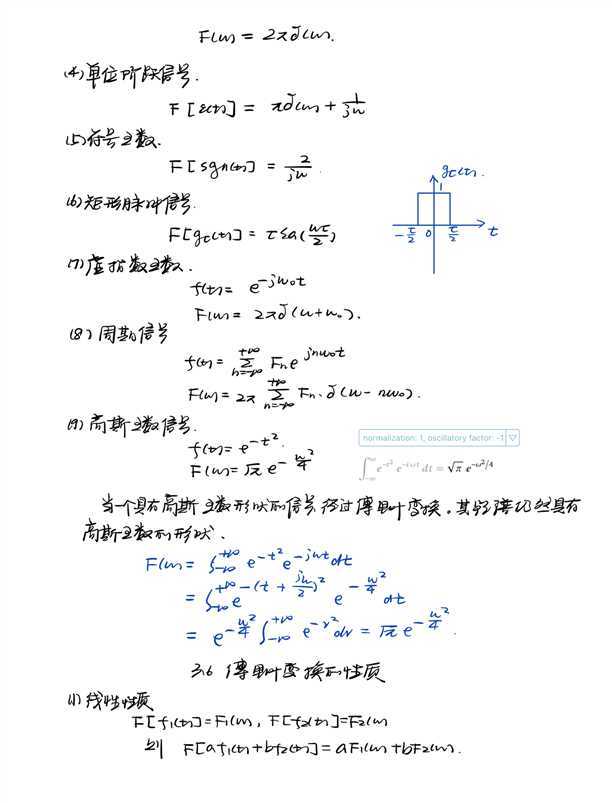 F(ω) = 2πδ(ω).
(4) 单位阶跃信号.
F[ε(t)] = πδ(ω) + 1/jω
(5) 符号函数.
F[sgn(t)] = 2/jω.
(6) 矩形脉冲信号.
F[gτ(t)] = τSa(ωτ/2)
gτ(t).
1
-τ/2 0 τ/2 t
(7) 虚指数函数.
f(t) = e^{-jω₀t}
F(ω) = 2πδ(ω+ω₀).
(8) 周期信号
f(t) = Σ_{n=-∞}^{+∞} Fₙ e^{jnω₀t}
F(ω) = 2π Σ_{n=-∞}^{+∞} Fₙ·δ(ω-nω₀).
(9) 高斯函数信号.
f(t) = e^{-t²}.
F(ω) = √π e^{-ω²/4}
normalization: 1, oscillatory factor: -1
∫_{-∞}^{∞} e^{-t²} e^{-iωt} dt = √π e^{-ω²/4}
当一个具有高斯函数形状的信号经过傅里叶变换,其频谱仍然具有
高斯函数的形状.
F(ω) = ∫_{-∞}^{+∞} e^{-t²} e^{-jωt} dt
= ∫_{-∞}^{+∞} e^{-(t+jω/2)²} e^{-ω²/4} dt
= e^{-ω²/4} ∫_{-∞}^{+∞} e^{-v²} dv = √π e^{-ω²/4}.
3.6 傅里叶变换的性质
(1) 线性性质
F[f₁(t)] = F₁(ω), F[f₂(t)] = F₂(ω)
则 F[af₁(t)+bf₂(t)] = aF₁(ω)+bF₂(ω).